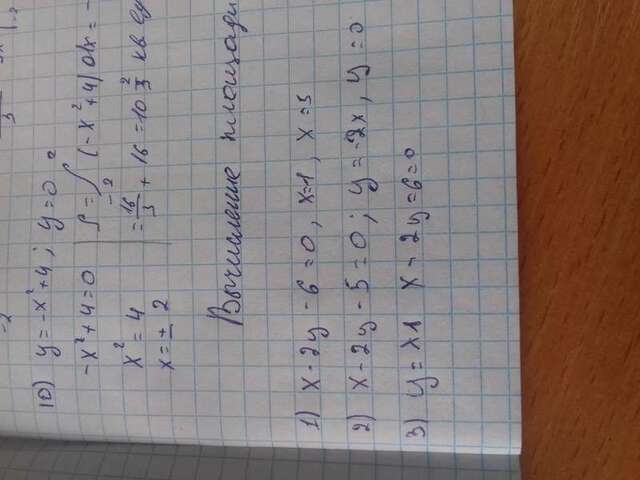 -2 3
10) y = -x²+4 ; y=0
-x²+4=0 S=∫ (-x²+4) dx = -
-2
x² = 4 = 16/3 + 16 = 10 2/3 кв ед
x = ± 2
Вычисление площади
1) x - 2y - 6 = 0, x=1, x=5
2) x - 2y - 5 = 0 ; y = -2x, y = 0
3) y = x1 x - 2y = 6 = 0